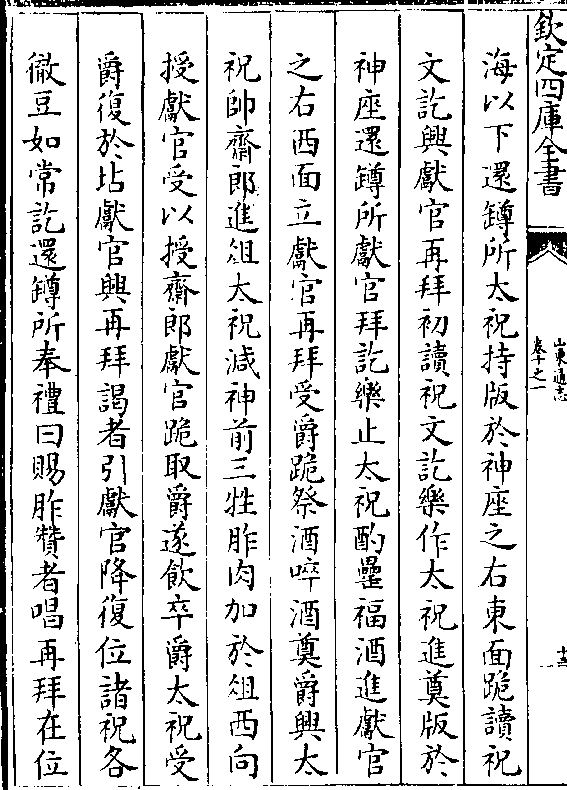 欽定四庫全書
山東通志
卷十之一
海以下還罇所太祝持版於神座之右東面跪讀祝
文訖興獻官再拜初讀祝文訖樂作太祝進奠版於
神座還罇所獻官拜訖樂止太祝酌罍福酒進獻官
之右西面立獻官再拜受爵跪祭酒啐酒奠爵興太
祝帥齋郎進俎太祝減神前三牲胙肉加於俎西向
授獻官受以授齋郎獻官跪取爵遂飲卒爵太祝受
爵復於坫獻官興再拜謁者引獻官降復位諸祝各
徹豆如常訖還罇所奉禮曰賜胙贊者唱再拜在位